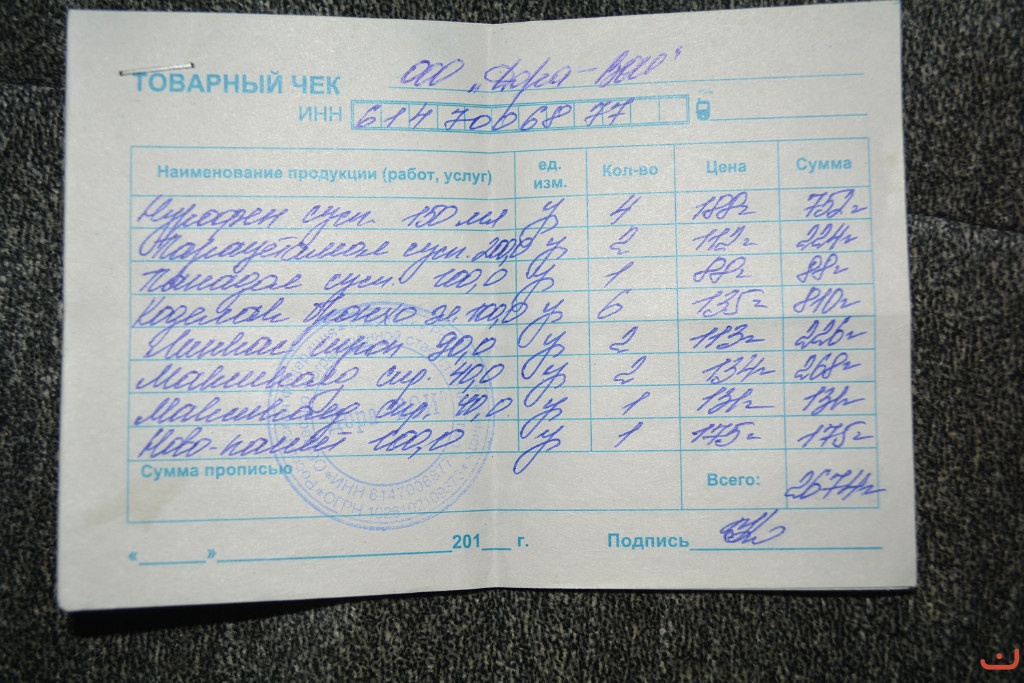 ТОВАРНЫЙ ЧЕК ООО "Дора-
ИНН 6147006877
Наименование продукции (работ, услуг) ед. изм. Кол-во Цена Сумма
Нурофен сусп. 150 мл у 4 188= 752=
Парацетамол сусп. 200,0 у 2 112= 224=
Панадол сусп. 100,0 у 1 88= 88=
Коделак Бронхо эл. 100,0 у 6 135= 810=
сироп 90,0 у 2 113= 226=
Максиколд сир. у 2 134= 268=
Максиколд сир. у 1 131= 131=
Ново-пассит 100,0 у 1 175= 175=
Сумма прописью Всего: 2674=
«______»______________________201___ г. Подпись